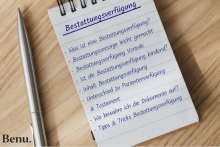 Bestattungsverfügung
Was ist eine Bestattungsverfügung?
Bestattungsvorsorge leicht gemacht
Bestattungsverfügung Vorteile
Ist die Bestattungsverfügung bindend?
Inhalt Bestattungsverfügung
Unterschied zu Patientenverfügung
& Testament
Wo bewahre ich die Dokumente auf?
Tipps & Tricks Bestattungsverfügung
Benu.